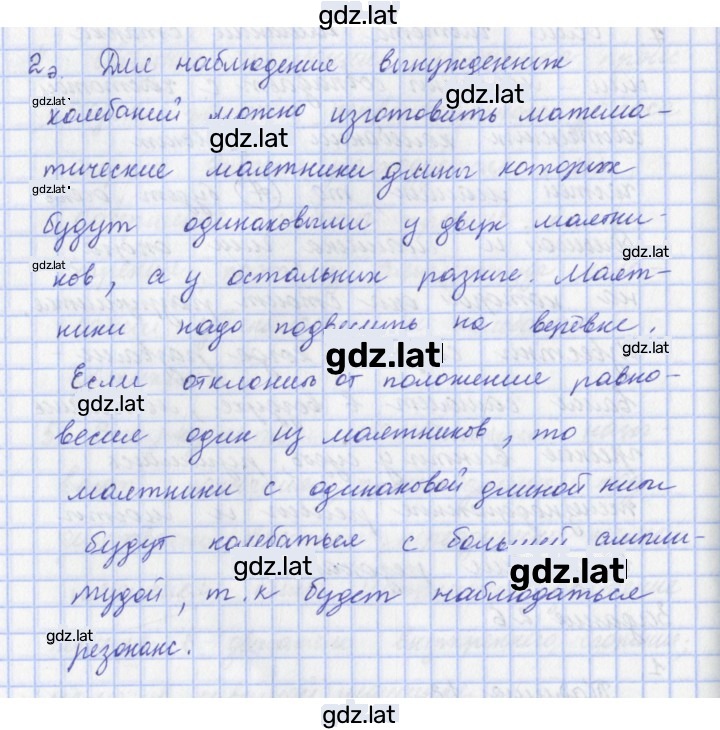 gdz.lat
2. Для наблюдение вынужденных
gdz.lat
gdz.lat
колебаний можно изготовить матема-
gdz.lat
тические маятники длины которых
gdz.lat
будут одинаковыми у двух маятни-
gdz.lat
gdz.lat
ков, а у остальных разные. Маят-
ники надо подвесить на верёвке.
gdz.lat
gdz.lat
Если отклонить от положение равно-
gdz.lat
весия один из маятников, то
маятники с одинаковой длиной нити
будут колебаться с большей ампли-
gdz.lat
gdz.lat
тудой, т.к будет наблюдаться
gdz.lat
резонанс.
gdz.lat